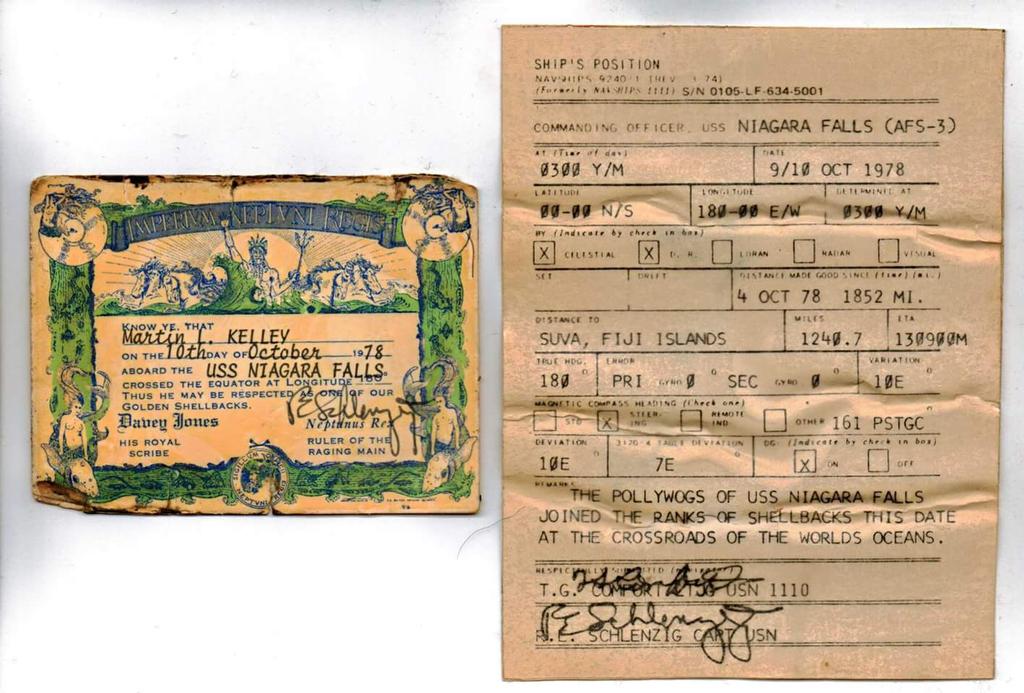 IMPERIVM NEPTVNI REGIS
KNOW YE, THAT
Martin L. KELLEY
ON THE 10th DAY OF October 1978
ABOARD THE USS NIAGARA FALLS
CROSSED THE EQUATOR AT LONGITUDE 180°
THUS HE MAY BE RESPECTED AS ONE OF OUR
GOLDEN SHELLBACKS.
Davey Jones
HIS ROYAL
SCRIBE
Neptunus Rex
RULER OF THE
RAGING MAIN
SHIP'S POSITION
NAVSHIPS 9240/1 (REV. 1-74)
(Formerly NAVSHIPS 1111) S/N 0105-LF-634-5001
COMMANDING OFFICER, USS NIAGARA FALLS (AFS-3)
AT (Time of day) DATE
0300 Y/M 9/10 OCT 1978
LATITUDE LONGITUDE DETERMINED AT
00-00 N/S 180-00 E/W 0300 Y/M
BY (Indicate by check in box)
X CELESTIAL X D. R. LORAN RADAR VISUAL
SET DRIFT DISTANCE MADE GOOD SINCE (time) (mi.)
4 OCT 78 1852 MI.
DISTANCE TO MILES ETA
SUVA, FIJI ISLANDS 1240.7 130900M
TRUE HDG. ERROR VARIATION
180° PRI GYRO 0° SEC GYRO 0° 10E°
MAGNETIC COMPASS HEADING (Check one)
STD X STEERING REMOTE IND OTHER 161 PSTGC°
DEVIATION 3120-4 TABLE DEVIATION DG: (Indicate by check in box)
10E° 7E° X ON OFF
REMARKS
THE POLLYWOGS OF USS NIAGARA FALLS
JOINED THE RANKS OF SHELLBACKS THIS DATE
AT THE CROSSROADS OF THE WORLDS OCEANS.
RESPECTFULLY SUBMITTED
T.G. COMFORT LTJG USN 1110
R.E. SCHLENZIG CAPT USN